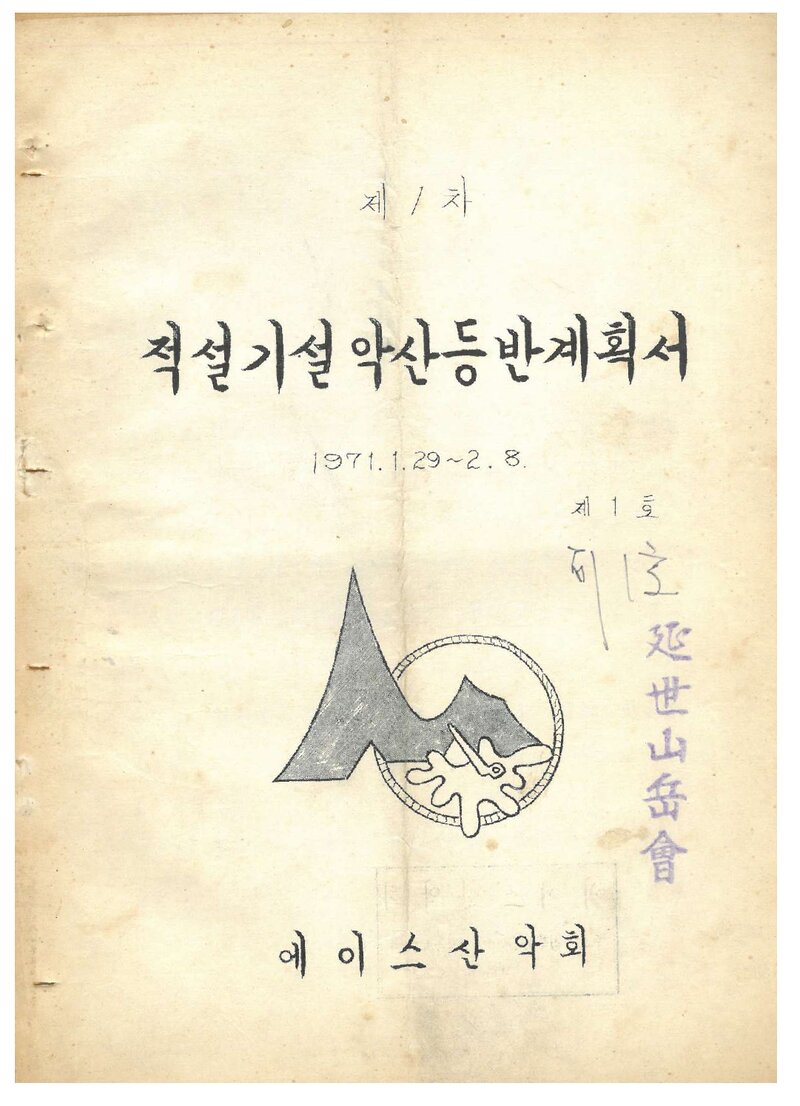 제 1 차
적설기설악산등반계획서
1971.1.29~2.8.
제 1 호
延世山岳會
에이스산악회